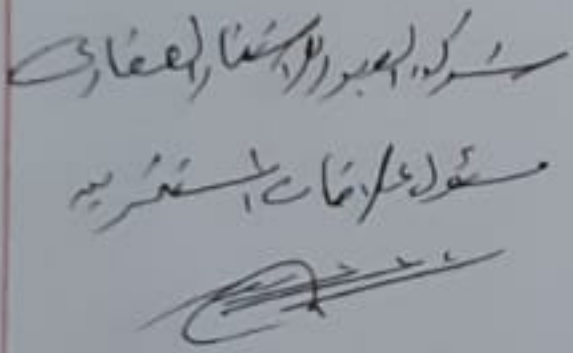 شركة العبور للاستثمار العقارى
مسئول علاقات المستثمرين